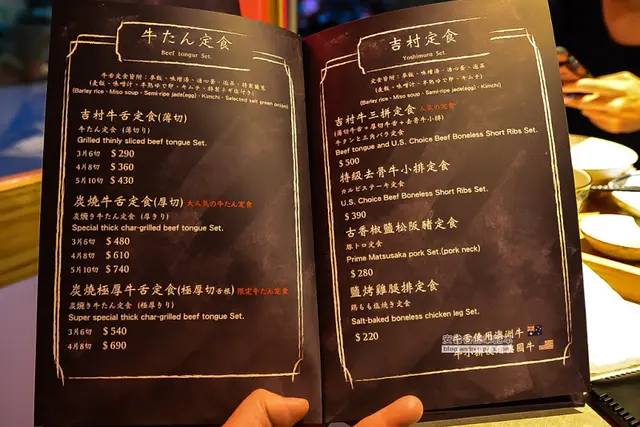 牛たん定食
Beef tongur Set.
(Barley rice、Miso soup、Semi-ripe jade(egg)、Kimchi、Selected salt green onion)
吉村牛舌定食(薄切)
牛たん定食 (薄切り)
Grilled thinly sliced beef tongue Set.
3片6切 $ 290
4片8切 $ 360
5片10切 $ 430
炭燒牛舌定食(厚切) 大人気の牛たん定食
炭燒き牛たん定食 (厚きり)
Special thick char-grilled beef tongue Set.
3片6切 $ 480
4片8切 $ 610
5片10切 $ 740
炭燒極厚牛舌定食(極厚切舌根) 限定牛たん定食
炭燒き牛たん定食 (極厚きり)
Super special thick char-grilled beef tongue Set.
3片6切 $ 540
4片8切 $ 690
吉村定食
Yoshimura Set.
(Barley rice、Miso soup、Semi-ripe jade(egg)、Kimchi)
吉村牛三拼定食 人気の定食
(薄切牛舌+厚切牛舌+去骨牛小排)
牛タンと三角バラ定食
Beef tongue and U.S. Choice Beef Boneless Short Ribs Set.
$ 500
特級去骨牛小排定食
カルビステーキ定食
U.S. Choice Beef Boneless Short Ribs Set.
$ 390
古香椒鹽松阪豬定食
豚トロ定食
Prime Matsusaka pork Set.(pork neck)
$ 280
鹽烤雞腿排定食
鶏もも塩焼き定食
Salt-baked boneless chicken leg Set.
$ 220
牛舌使用澳洲牛
牛小排使用美國牛